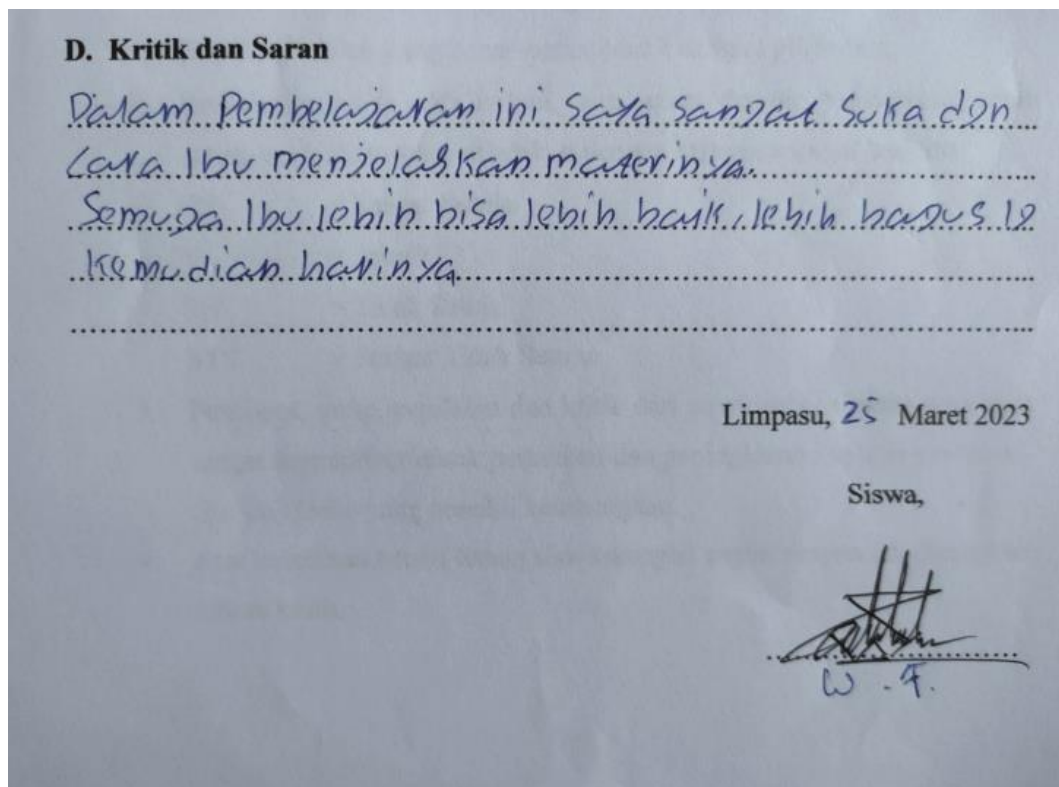 D. Kritik dan Saran
Dalam Pembelajaran ini Saya Sangat Suka dgn
Cara Ibu menjelaskan materinya.
Semuga Ibu lebih bisa lebih baik, lebih bagus lg
Kemudian harinya
Limpasu, 25 Maret 2023
Siswa,
W . F.